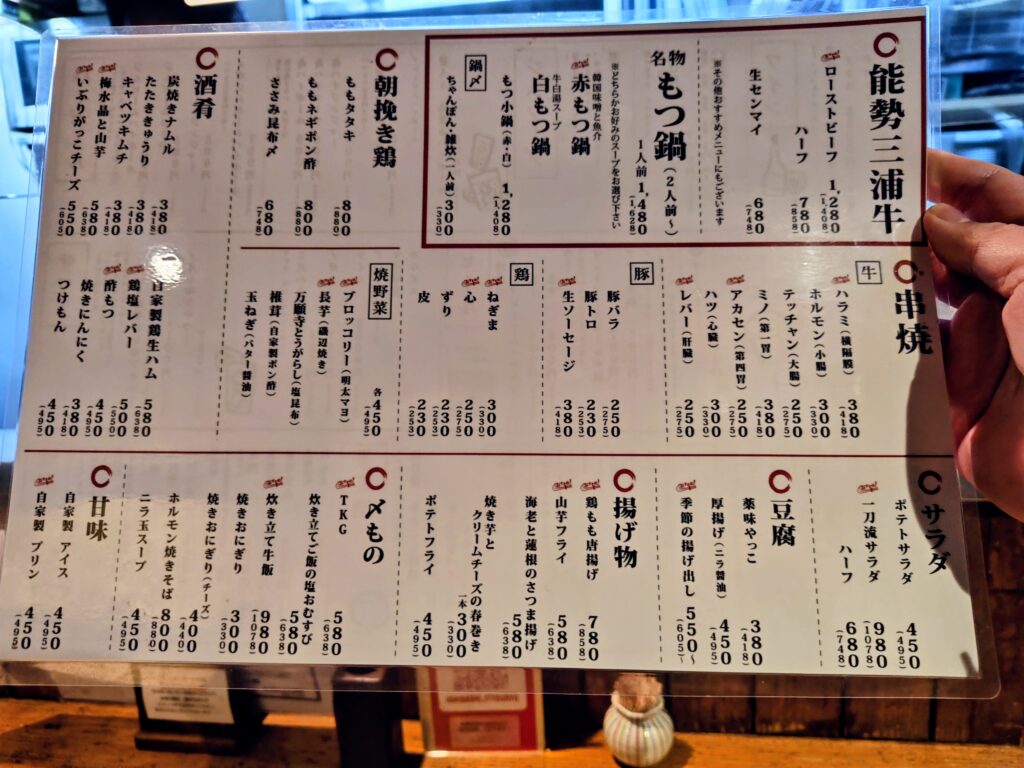 能勢三浦牛
ローストビーフ 1,280
(1,408)
ハーフ 780
(858)
生センマイ 680
(748)
※その他おすすめメニューにもございます
名物
もつ鍋(2人前〜)
1人前 1,480
(1,628)
※どちらかお好みのスープをお選び下さい
韓国味噌と魚介
赤もつ鍋
牛白湯スープ
白もつ鍋
もつ小鍋(赤・白) 1,280
(1,408)
鍋〆
ちゃんぽん・雑炊(一人前) 300
(330)
朝挽き鶏
ももタタキ 800
(880)
ももネギポン酢 800
(880)
ささみ昆布〆 680
(748)
酒肴
炭焼きナムル 380
(418)
たたききゅうり 380
(418)
キャベツキムチ 380
(418)
梅水晶と山芋 580
(638)
いぶりがっこチーズ 550
(605)
自家製鶏生ハム 580
(638)
鶏塩レバー 500
(550)
酢もつ 450
(495)
焼きにんにく 380
(418)
つけもん 450
(495)
串焼
牛
ハラミ(横隔膜) 380
(418)
ホルモン(小腸) 300
(330)
テッチャン(大腸) 250
(275)
ミノ(第一胃) 380
(418)
アカセン(第四胃) 250
(275)
ハツ(心臓) 300
(330)
レバー(肝臓) 250
(275)
豚
豚バラ 250
(275)
豚トロ 230
(253)
生ソーセージ 380
(418)
鶏
ねぎま 300
(330)
心 250
(275)
ずり 230
(253)
皮 230
(253)
焼野菜
各450
(495)
ブロッコリー(明太マヨ)
長芋(磯辺焼き)
万願寺とうがらし(塩昆布)
椎茸(自家製ポン酢)
玉ねぎ(バター醤油)
サラダ
ポテトサラダ 450
(495)
一刀流サラダ 980
(1078)
ハーフ 680
(748)
豆腐
薬味やっこ 380
(418)
厚揚げ(ニラ醤油) 450
(495)
季節の揚げ出し 550〜
(605)〜
揚げ物
鶏もも唐揚げ 780
(858)
山芋フライ 580
(638)
海老と蓮根のさつま揚げ 580
(638)
焼き芋と
クリームチーズの春巻き 一本300
(330)
ポテトフライ 450
(495)
〆もの
TKG 580
(638)
炊き立てご飯の塩おむすび 580
(638)
炊き立て牛飯 980
(1078)
焼きおにぎり 300
(330)
焼きおにぎり(チーズ) 400
(440)
ホルモン焼きそば 800
(880)
ニラ玉スープ 450
(495)
甘味
自家製 アイス 450
(495)
自家製 プリン 450
(495)